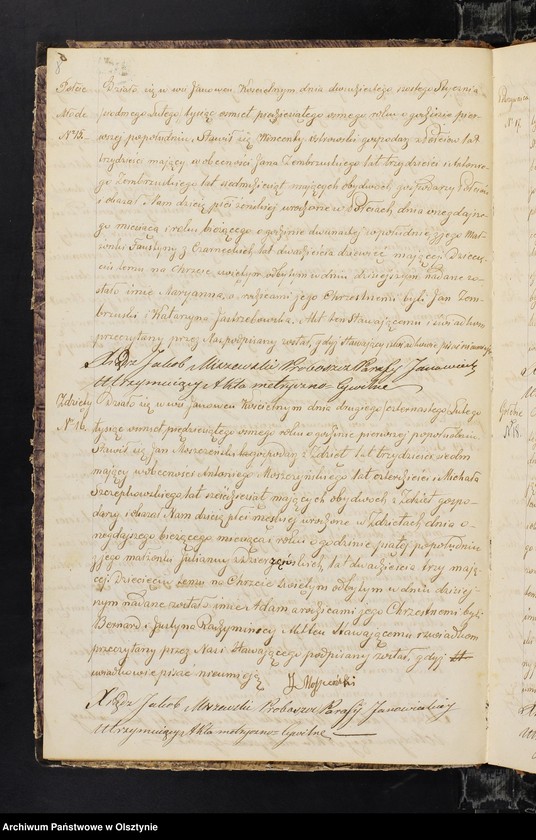 8
Połcie
Młode
N° 15.
Działo się w wsi Janowcu Kościelnym dnia dwudziestego szóstego Stycznia
siódmego Lutego tysiąc ośmset pięćdziesiątego ósmego roku o godzinie pier-
wszej popołudniu, Stawił się Wincenty Ostrowski gospodarz z Połciów lat
trzydzieści mający w obecności Jana Zembrzuskiego lat trzydzieści i Antonie-
go Zembrzuskiego lat siedmdziesiąt mających obydwóch gospodarzy z Połciów
i okazał Nam dziecię płci żeńskiej urodzone w Połciach dnia onegdajsze-
go miesiąca i roku bieżącego o godzinie dwunastej w południe z jego Mał-
żonki Faustyny z Czarneckich lat dwadzieścia dziewięć mającej. Dziecię-
ciu temu na Chrzcie świętym odbytym w dniu dzisiejszym nadane zo-
stało imie Maryanna, a rodzicami jego Chrzestnemi byli Jan Zem-
brzuski i Katarzyna Jastrzębowska. Akt ten Stawającemu i świadkom
przeczytany przez Nas podpisany został, gdyż Stawający i świadkowie pisać nieumieją
X. Jakób Mszewski Proboszcz Parafij Janowieckiej
Utrzymujący Akta metryczno-Cywilne
Zdziety
N° 16.
Działo się w wsi Janowcu Kościelnym dnia drugiego czternastego Lutego
tysiąc ośmset pięćdziesiątego ósmego roku o godzinie pierwszej popołudniu
Stawił się Jan gospodarz z Zdziet lat trzydzieści siedm
mający w obecności Antoniego Moszczyńskiego lat czterdzieści i Michała
Szczepkowskiego lat sześćdziesiąt mających obydwóch z Zdziet gospo-
darzy i okazał Nam dziecię płci męskiej urodzone w Zdzietach dnia o-
negdajszego bieżącego miesiąca i roku o godzinie piątej popołudniu
z jego małżonki Julianny z lat dwadzieścia trzy mają-
cej. Dziecięciu temu na Chrzcie świętym odbytym w dniu dzisiej-
szym nadane zostało imie Adam a rodzicami jego Chrzestnemi byli
Bernard i Justyna Akt ten Stawającemu i świadkom
przeczytany przez Nas i Stawającego podpisany został, gdyż
świadkowie pisać nieumieją
X. Jakób Mszewski Proboszcz Parafij Janowieckiej
Utrzymujący Akta metryczno-Cywilne
N° 17.
N° 18.
Archiwum Państwowe w Olsztynie